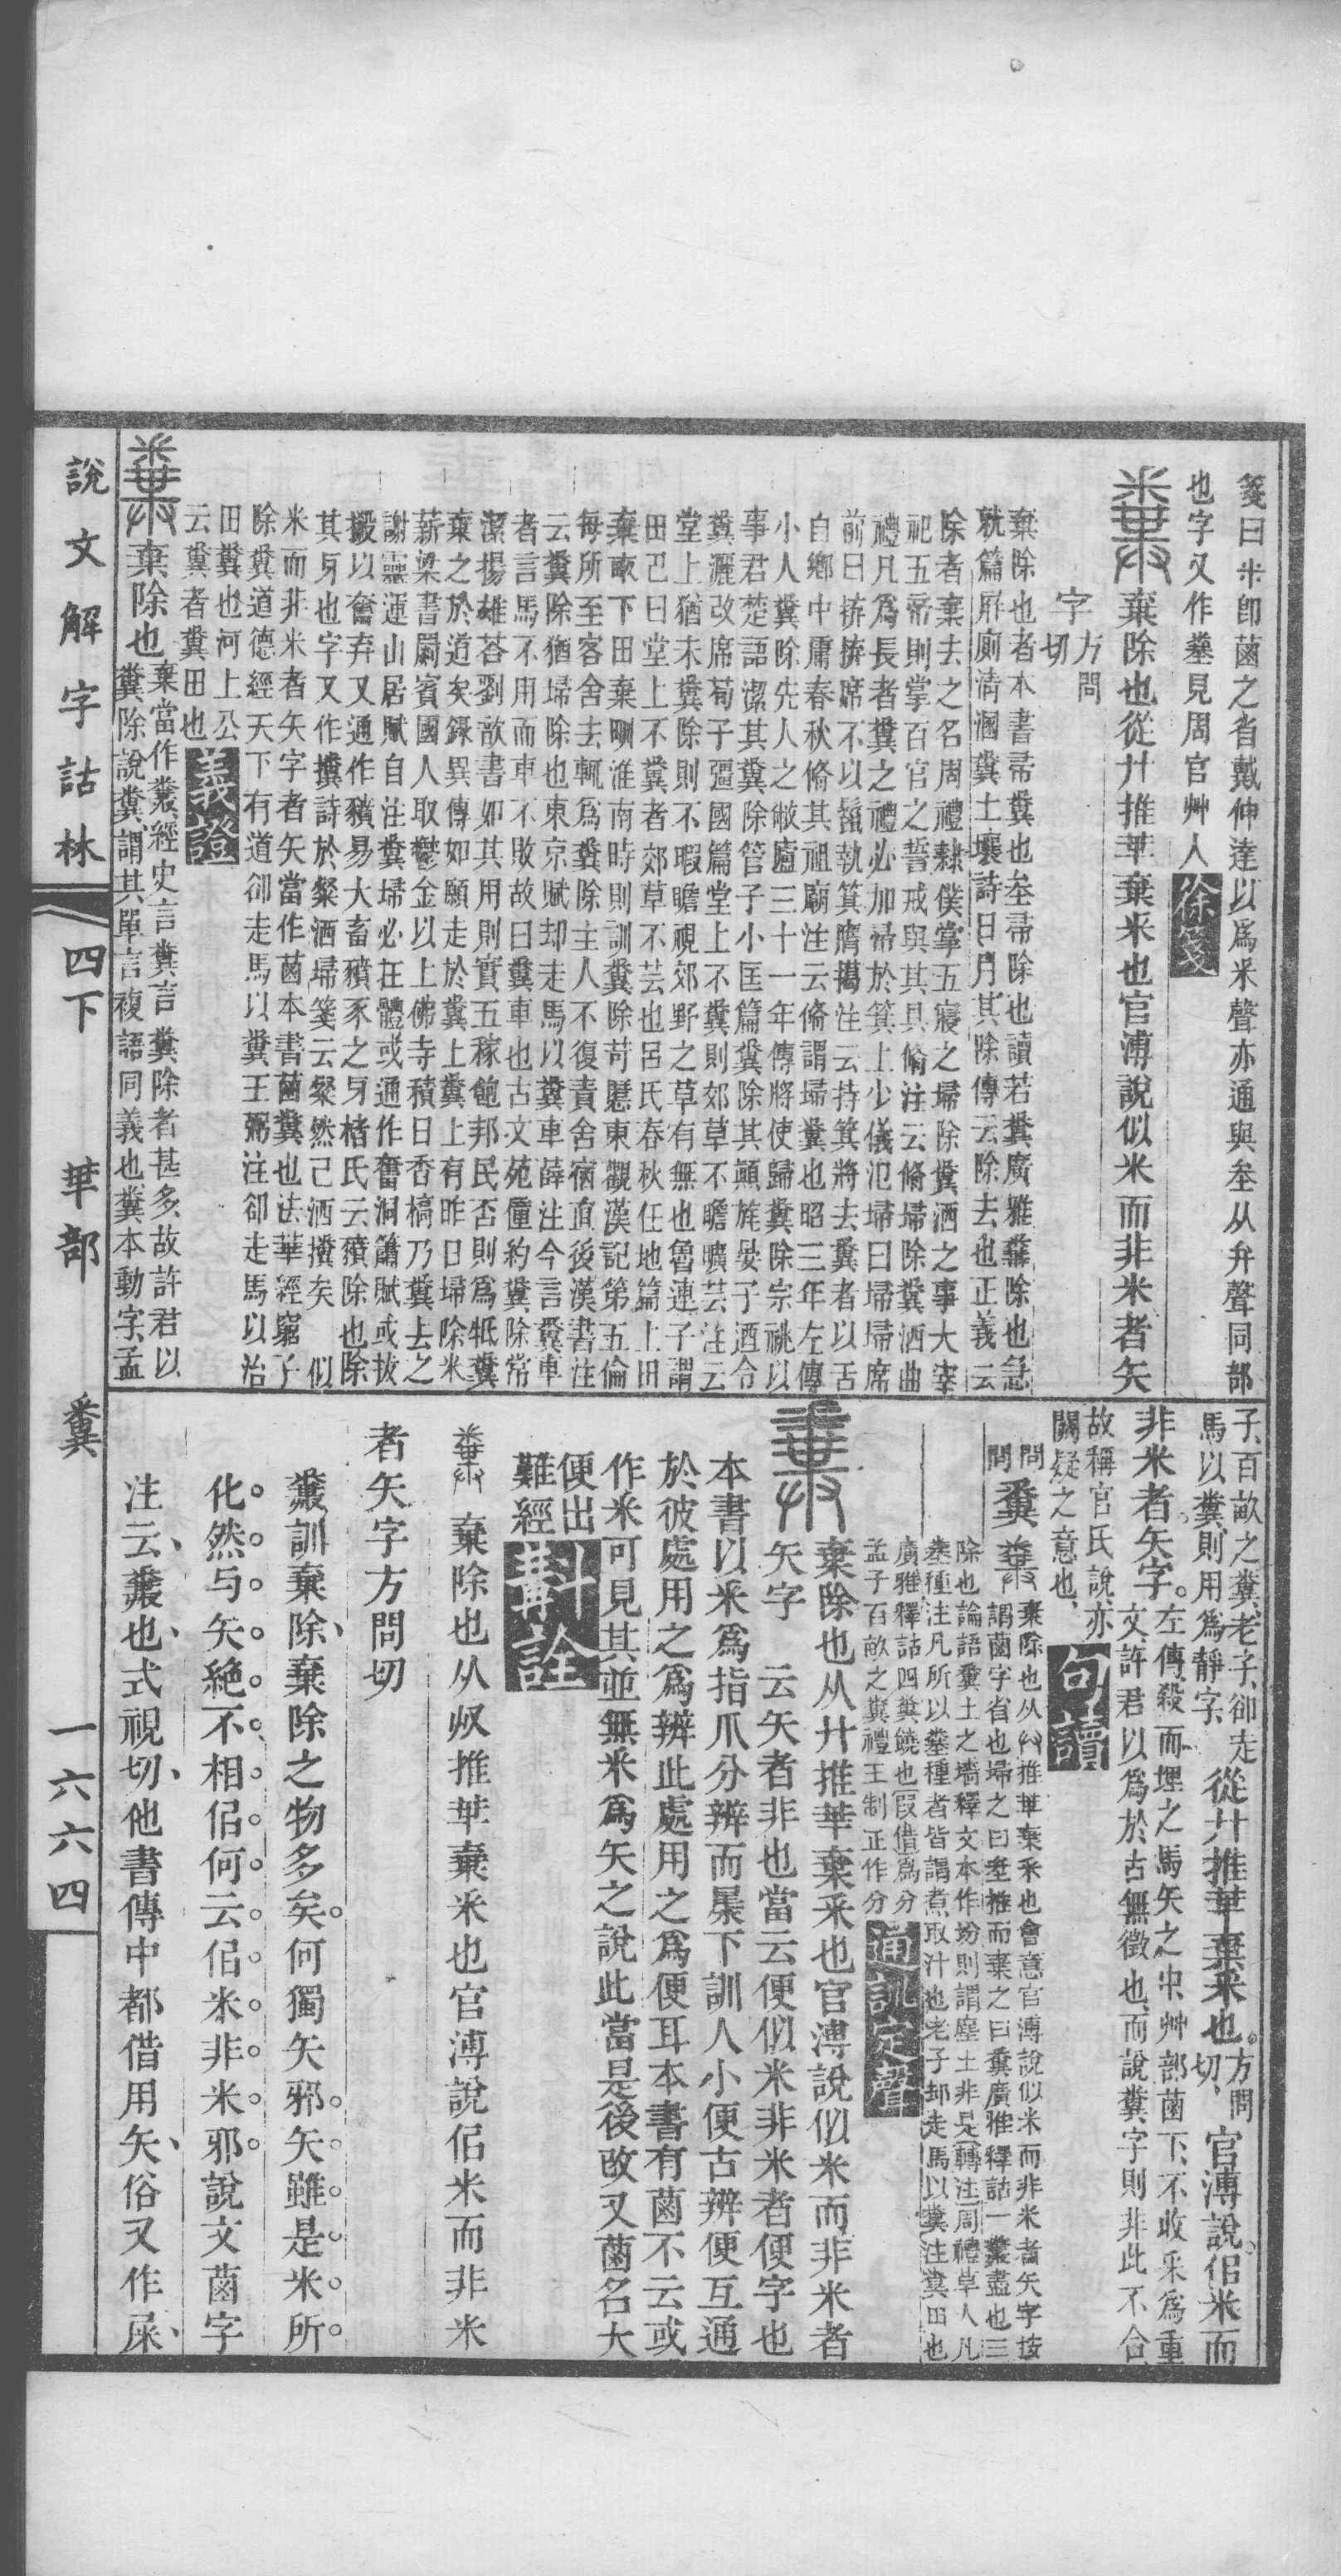 箋曰米卽䔇之省戴仲達以爲釆聲亦通與坌从弁聲同部
也字又作𡊄見周官艸人徐箋
棄除也從廾推𠦒棄釆也官溥說似米而非米者矢
字方問切
棄除也者本書帚糞也坌帚除也讀若糞廣雅糞除也急
就篇屛廁清溷糞土壤詩日月其除傳云除去也正義云
除者棄去之名周禮隸僕掌五寢之埽除糞洒之事大宰
祀五帝則掌百官之誓戒與其具脩注云脩埽除糞洒曲
禮凡爲長者糞之禮必加帚於箕上少儀氾埽曰埽埽席
前曰拚拚席不以鬛執箕膺擖注云持箕將去糞者以舌
自鄉中庸春秋脩其祖廟注云脩謂埽糞也昭三年左傳
小人糞除先人之敝廬三十一年傳將使歸糞除宗祧以
事君楚語潔其糞除管子小匡篇糞除其顚旄晏子迺令
糞灑改席荀子彊國篇堂上不糞則郊草不瞻曠芸注云
堂上猶未糞除則不暇瞻視郊野之草有無也魯連子謂
田巴曰堂上不糞者郊草不芸也呂氏春秋任地篇上田
棄畝下田棄甽淮南時則訓糞除苛慝東觀漢記第五倫
每所至客舍去輒爲糞除主人不復責舍宿直後漢書注
云糞除猶埽除也東京賦却走馬以糞車薛注今言糞車
者言馬不用而車不敗故曰糞車也古文苑僮約糞除常
潔揚雄荅劉歆書如其用則實五稼飽邦民否則爲牴糞
棄之於道矣錄異傳如願走於糞上糞上有昨日埽除米
薪梁書罽賓國人取鬱金以上佛寺積日香槁乃糞去之
謝靈運山居賦自注糞埽必在體或通作奮洞簫賦或拔
撥以奮弃又通作豶易大畜豶豕之牙褚氏云豶除也除
其牙也字又作㩳詩於粲洒埽箋云粲然已洒㩳矣 似
米而非米者矢字者矢當作䔇本書䔇糞也法華經窮子
除糞道德經天下有道卻走馬以糞王弼注卻走馬以治
田糞也河上公
云糞者糞田也義證
棄除也棄當作糞經史言糞言糞除者甚多故許君以
糞除說糞謂其單言複語同義也糞本動字孟
子百畝之糞老子卻走
馬以糞則用爲靜字從廾推𠦒棄釆也方問切官溥說佀米而
非米者矢字左傳殺而埋之馬矢之中艸部䔇下不收釆爲重
文許君以爲於古無徵也而說糞字則非此不合
故稱官氏說亦
闕疑之意也句讀
問
問糞棄除也从廾推𠦒棄釆也會意官溥說似米而非米者矢字按
謂䔇字省也埽之曰坌推而棄之曰糞廣雅釋詁一糞盡也三
除也論語糞土之牆釋文本作坋則謂塵土非是轉注周禮草人凡
糞種注凡所以糞種者皆謂煮取汁也老子却走馬以糞注糞田也
廣雅釋詁四糞饒也叚借爲分
孟子百畝之糞禮王制正作分通訓定聲
棄除也从廾推𠦒棄釆也官溥說似米而非米者
矢字 云矢者非也當云便似米非米者便字也
本書以釆爲指爪分辨而㬥下訓人小便古辨便互通
於彼處用之爲辨此處用之爲便耳本書有䔇不云或
作釆可見其並無釆爲矢之說此當是後改又䔇名大
便出
難經斠詮
棄除也从𠬞推𠦒棄米也官溥說佀米而非米
者矢字方問切
糞訓棄除棄除之物多矣何獨矢邪矢雖是米所
化然与矢絶不相佀何云佀米非米邪說文䔇字
注云糞也式視切他書傳中都借用矢俗又作屎
說文解字詁林 四下 𠦒部 糞 一六六四